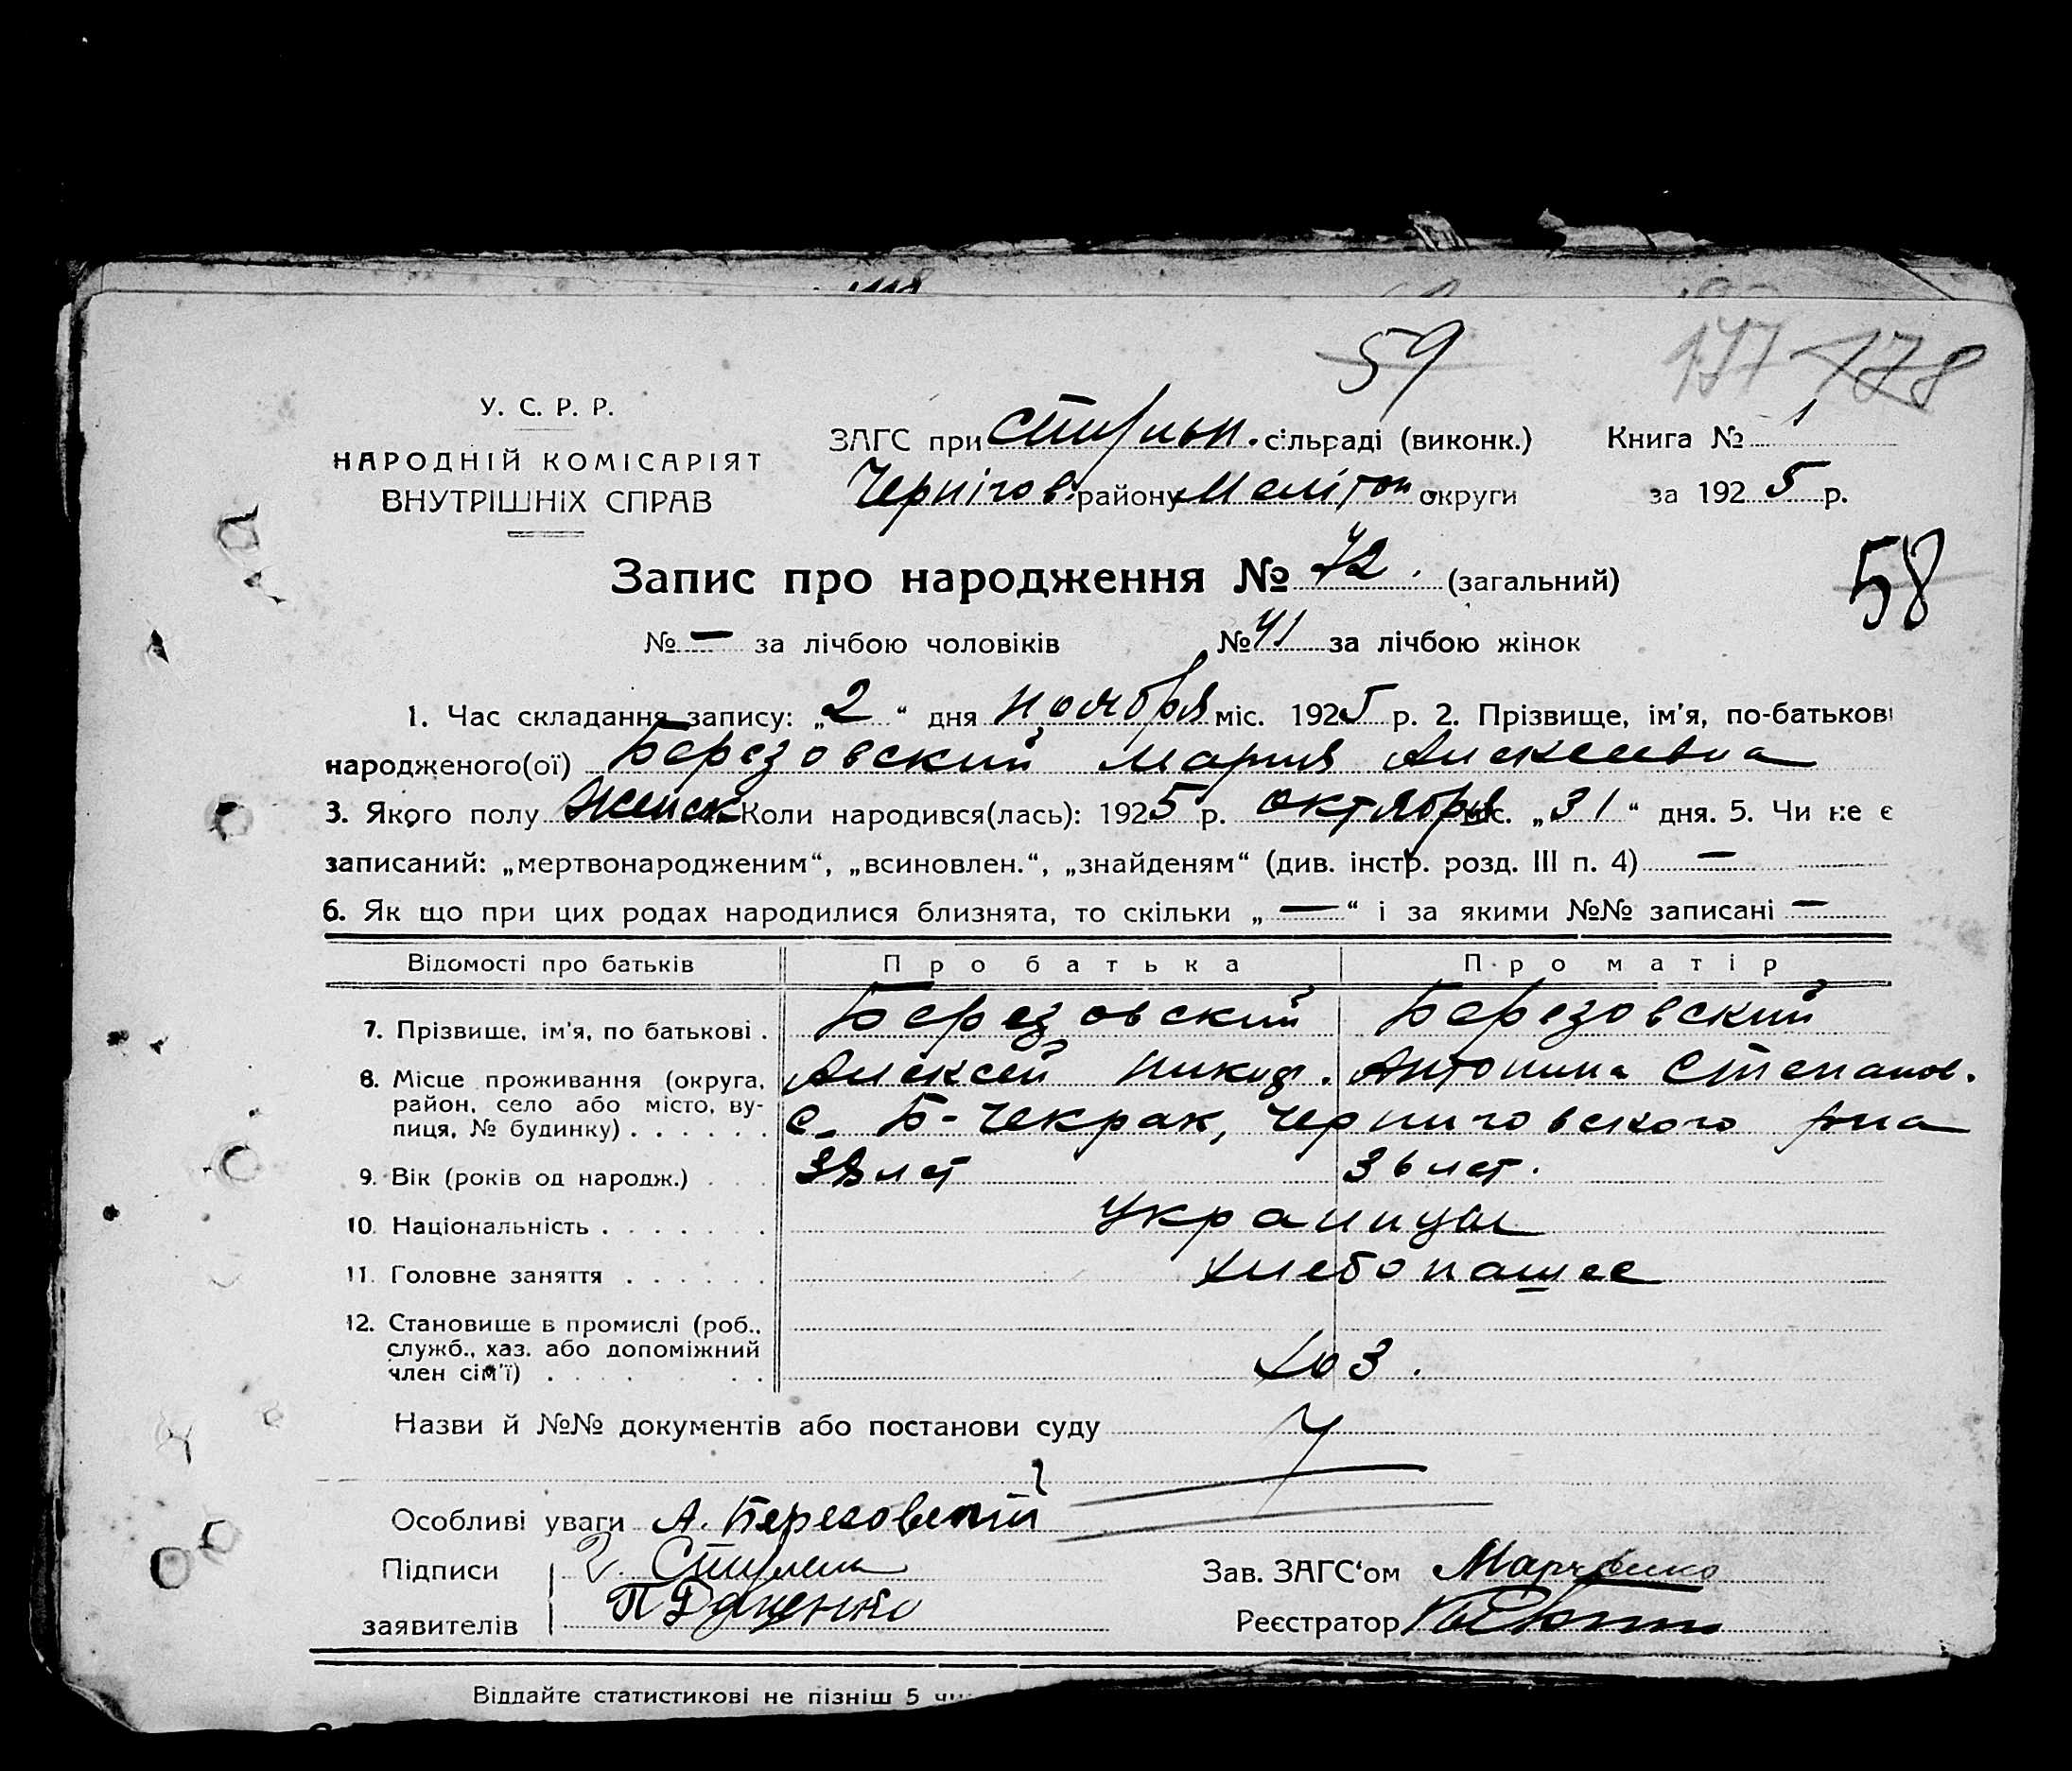 59
177 178
У. С. Р. Р.
НАРОДНІЙ КОМІСАРІЯТ
ВНУТРІШНІХ СПРАВ
ЗАГС при сільраді (виконк.) Книга № 1
Чернігов. району Мелітоп округи за 1925 р.
58
Запис про народження № 72. (загальний)
№ — за лічбою чоловіків № 41 за лічбою жінок
1. Час складання запису: „2“ дня ноября міс. 1925 р. 2. Прізвище, ім'я, по-батькові
народженого(ої) Березовский Мария Алексеевна
3. Якого полу женск Коли народився(лась): 1925 р. октября міс. „31“ дня. 5. Чи не є
записаний: „мертвонародженим“, „всиновлен.“, „знайденям“ (див. інстр. розд. III п. 4) —
6. Як що при цих родах народилися близнята, то скільки „—“ і за якими №№ записані —
Відомості про батьків Про батька Про матір
7. Прізвище, ім'я, по батькові . Березовский Березовский
Алексей Никиф. Антонина Степанов.
8. Місце проживання (округа,
район, село або місто, ву-
лиця, № будинку) . . . . . . с. Б-Чекрак, Черниговского рна
9. Вік (років од народж.) . . . 38 лет 36 лет.
10. Національність . . . . . . . Украинцы
11. Головне заняття . . . . . . хлебопашес
12. Становище в промислі (роб.,
служб., хаз. або допоміжний
член сім'ї) . . . . . . . хоз.
Назви й №№ документів або постанови суду
Особливі уваги А. Березовский
Підписи Зав. ЗАГС'ом Марченко
заявителів П Доценко Реєстратор
Віддайте статистикові не пізніш 5